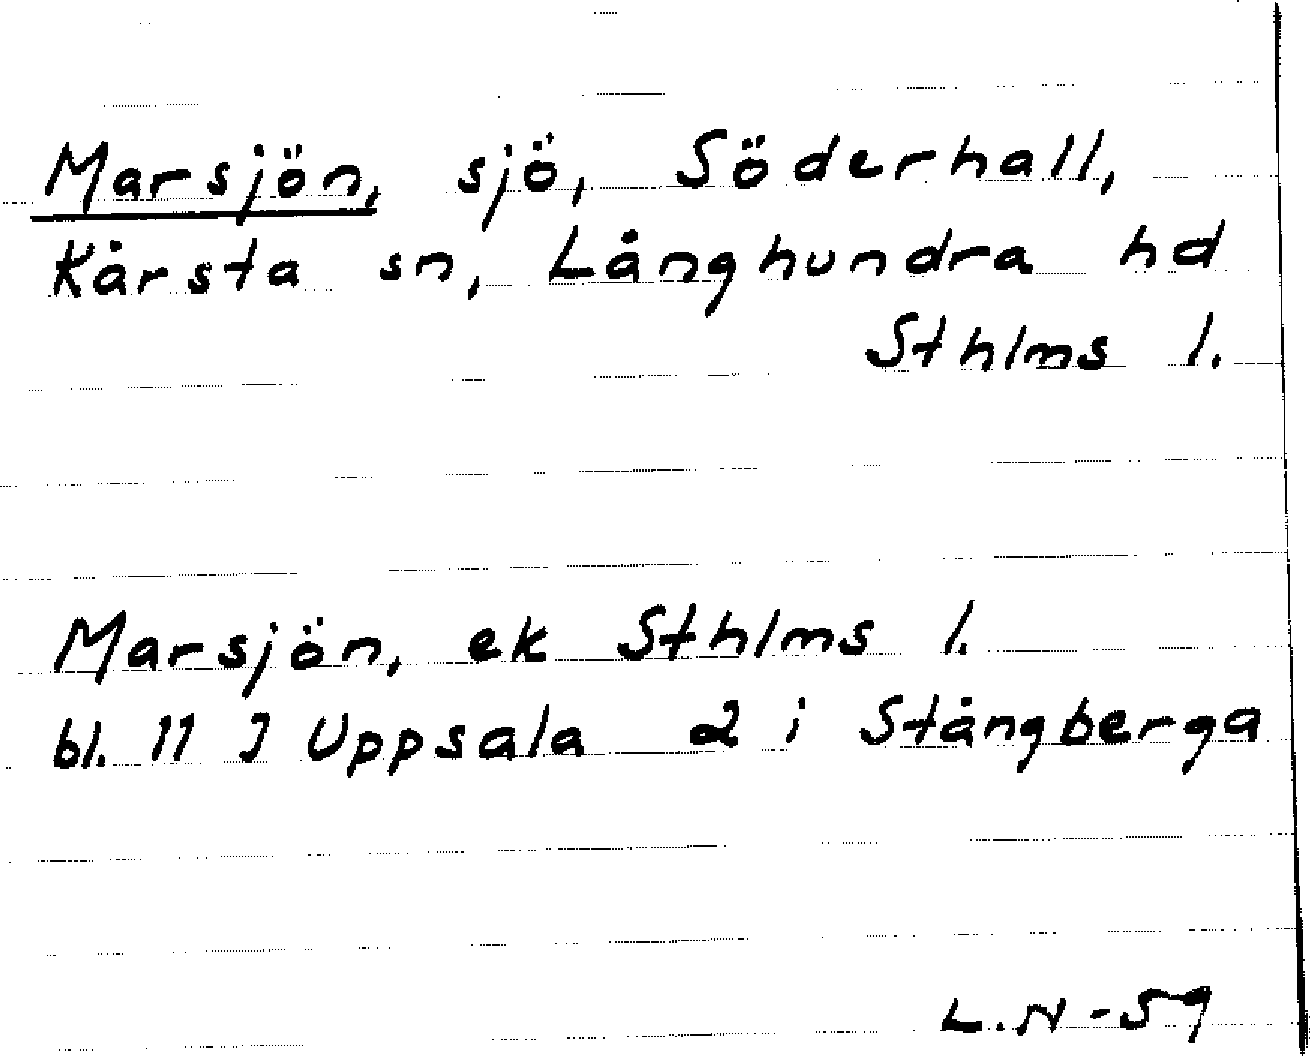 Marsjön, sjö, Söderhall,
Kårsta sn, Långhundra hd
Sthlms l.
Marsjön, ek Sthlms l.
bl. 11 J Uppsala 2 i Stångberga
L.N-59